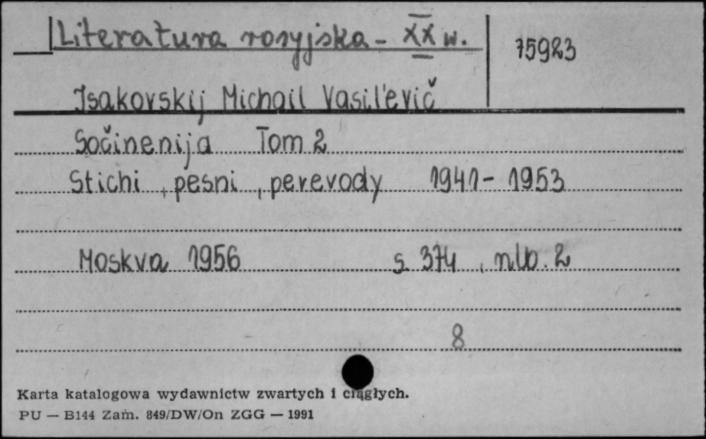 Literatura rosyjska - XX w.
75923
Isakovskij Michail Vasil'evič
Sočinenija Tom 2
Stichi, pesni, perevody 1941-1953
Moskva 1956 s. 374, nlb. 2
8
Karta katalogowa wydawnictw zwartych i ciągłych.
PU — B144 Zam. 849/DW/On ZGG — 1991